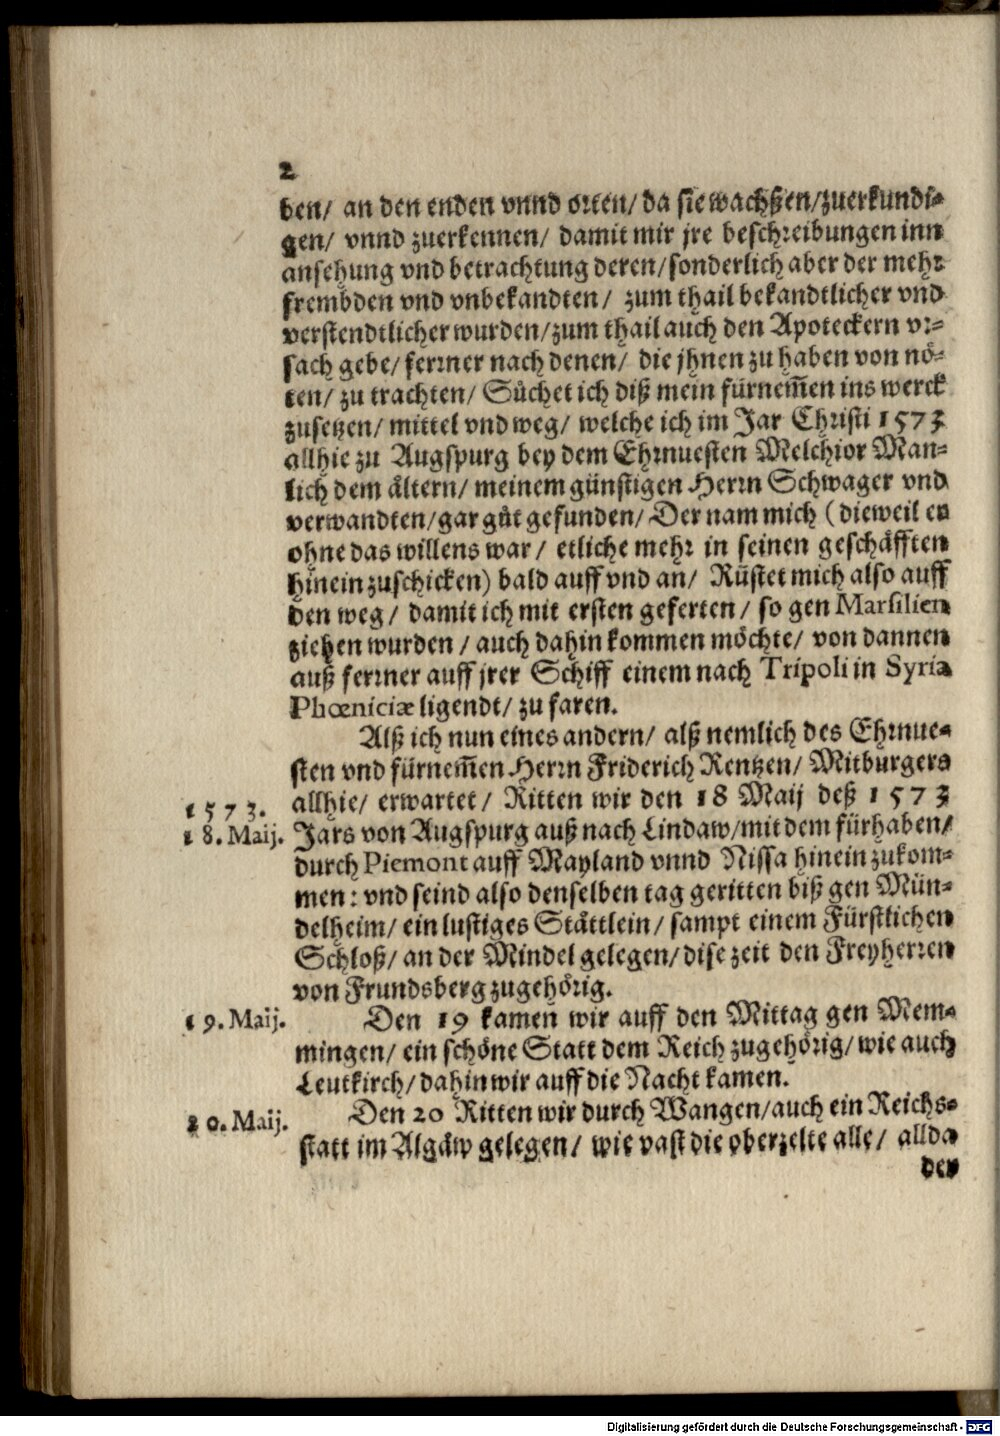 2
ben/ an den enden vnnd orten/ da sie wachßen/zuerkundi⸗
gen/ vnnd zuerkennen/ damit mir jre beschreibungen inn
ansehung vnd betrachtung deren/sonderlich aber der mehr
frembden vnd vnbekandten/ zum thail bekandtlicher vnd
verstendtlicher wurden/zum thail auch den Apoteckern vr⸗
sach gebe/ ferrner nach denen/ die jhnen zu haben von nö⸗
ten/ zu trachten/ Süchet ich diß mein fürnem̃en ins werck
zusetzen/ mittel vnd weg/ welche ich im Jar Christi 1573
allhie zu Augspurg bey dem Ehrnuesten Melchior Man⸗
lich dem ältern/ meinem günstigen Herrn Schwager vnd
verwandten/gar gůt gefunden/ Der nam mich (dieweil er
ohne das willens war/ etliche mehr in seinen geschäfften
hinein zuschicken) bald auff vnd an/ Rüstet mich also auff
den weg/ damit ich mit ersten geferten/ so gen Marsilien
ziehen wurden/ auch dahin kommen möchte/ von dannen
auß ferrner auff jrer Schiff einem nach Tripoli in Syria
Phœniciæ ligendt/ zu faren.
Alß ich nun eines andern/ alß nemlich des Ehrnue⸗
sten vnd fürnem̃en Herrn Friderich Rentzen/ Mitburgers
allhie/ erwartet/ Ritten wir den 18 Maij deß 1573
1573.
18. Maij.
Jars von Augspurg auß nach Lindaw/mit dem fürhaben/
durch Piemont auff Mayland vnnd Nissa hinein zukom⸗
men: vnd seind also denselben tag geritten biß gen Mün⸗
delheim/ ein lustiges Stättlein/ sampt einem Fürstlichen
Schloß/ an der Mindel gelegen/ dise zeit den Freyherren
von Frundsberg zugehörig.
19. Maij.
Den 19 kamen wir auff den Mittag gen Mem⸗
mingen/ ein schöne Statt dem Reich zugehörig/ wie auch
Leutkirch/ dahin wir auff die Nacht kamen.
20. Maij.
Den 20 Ritten wir durch Wangen/auch ein Reichs⸗
statt im Algäw gelegen/ wie vast die oberzelte alle/ allda
der
Digitalisierung gefördert durch die Deutsche Forschungsgemeinschaft - DFG